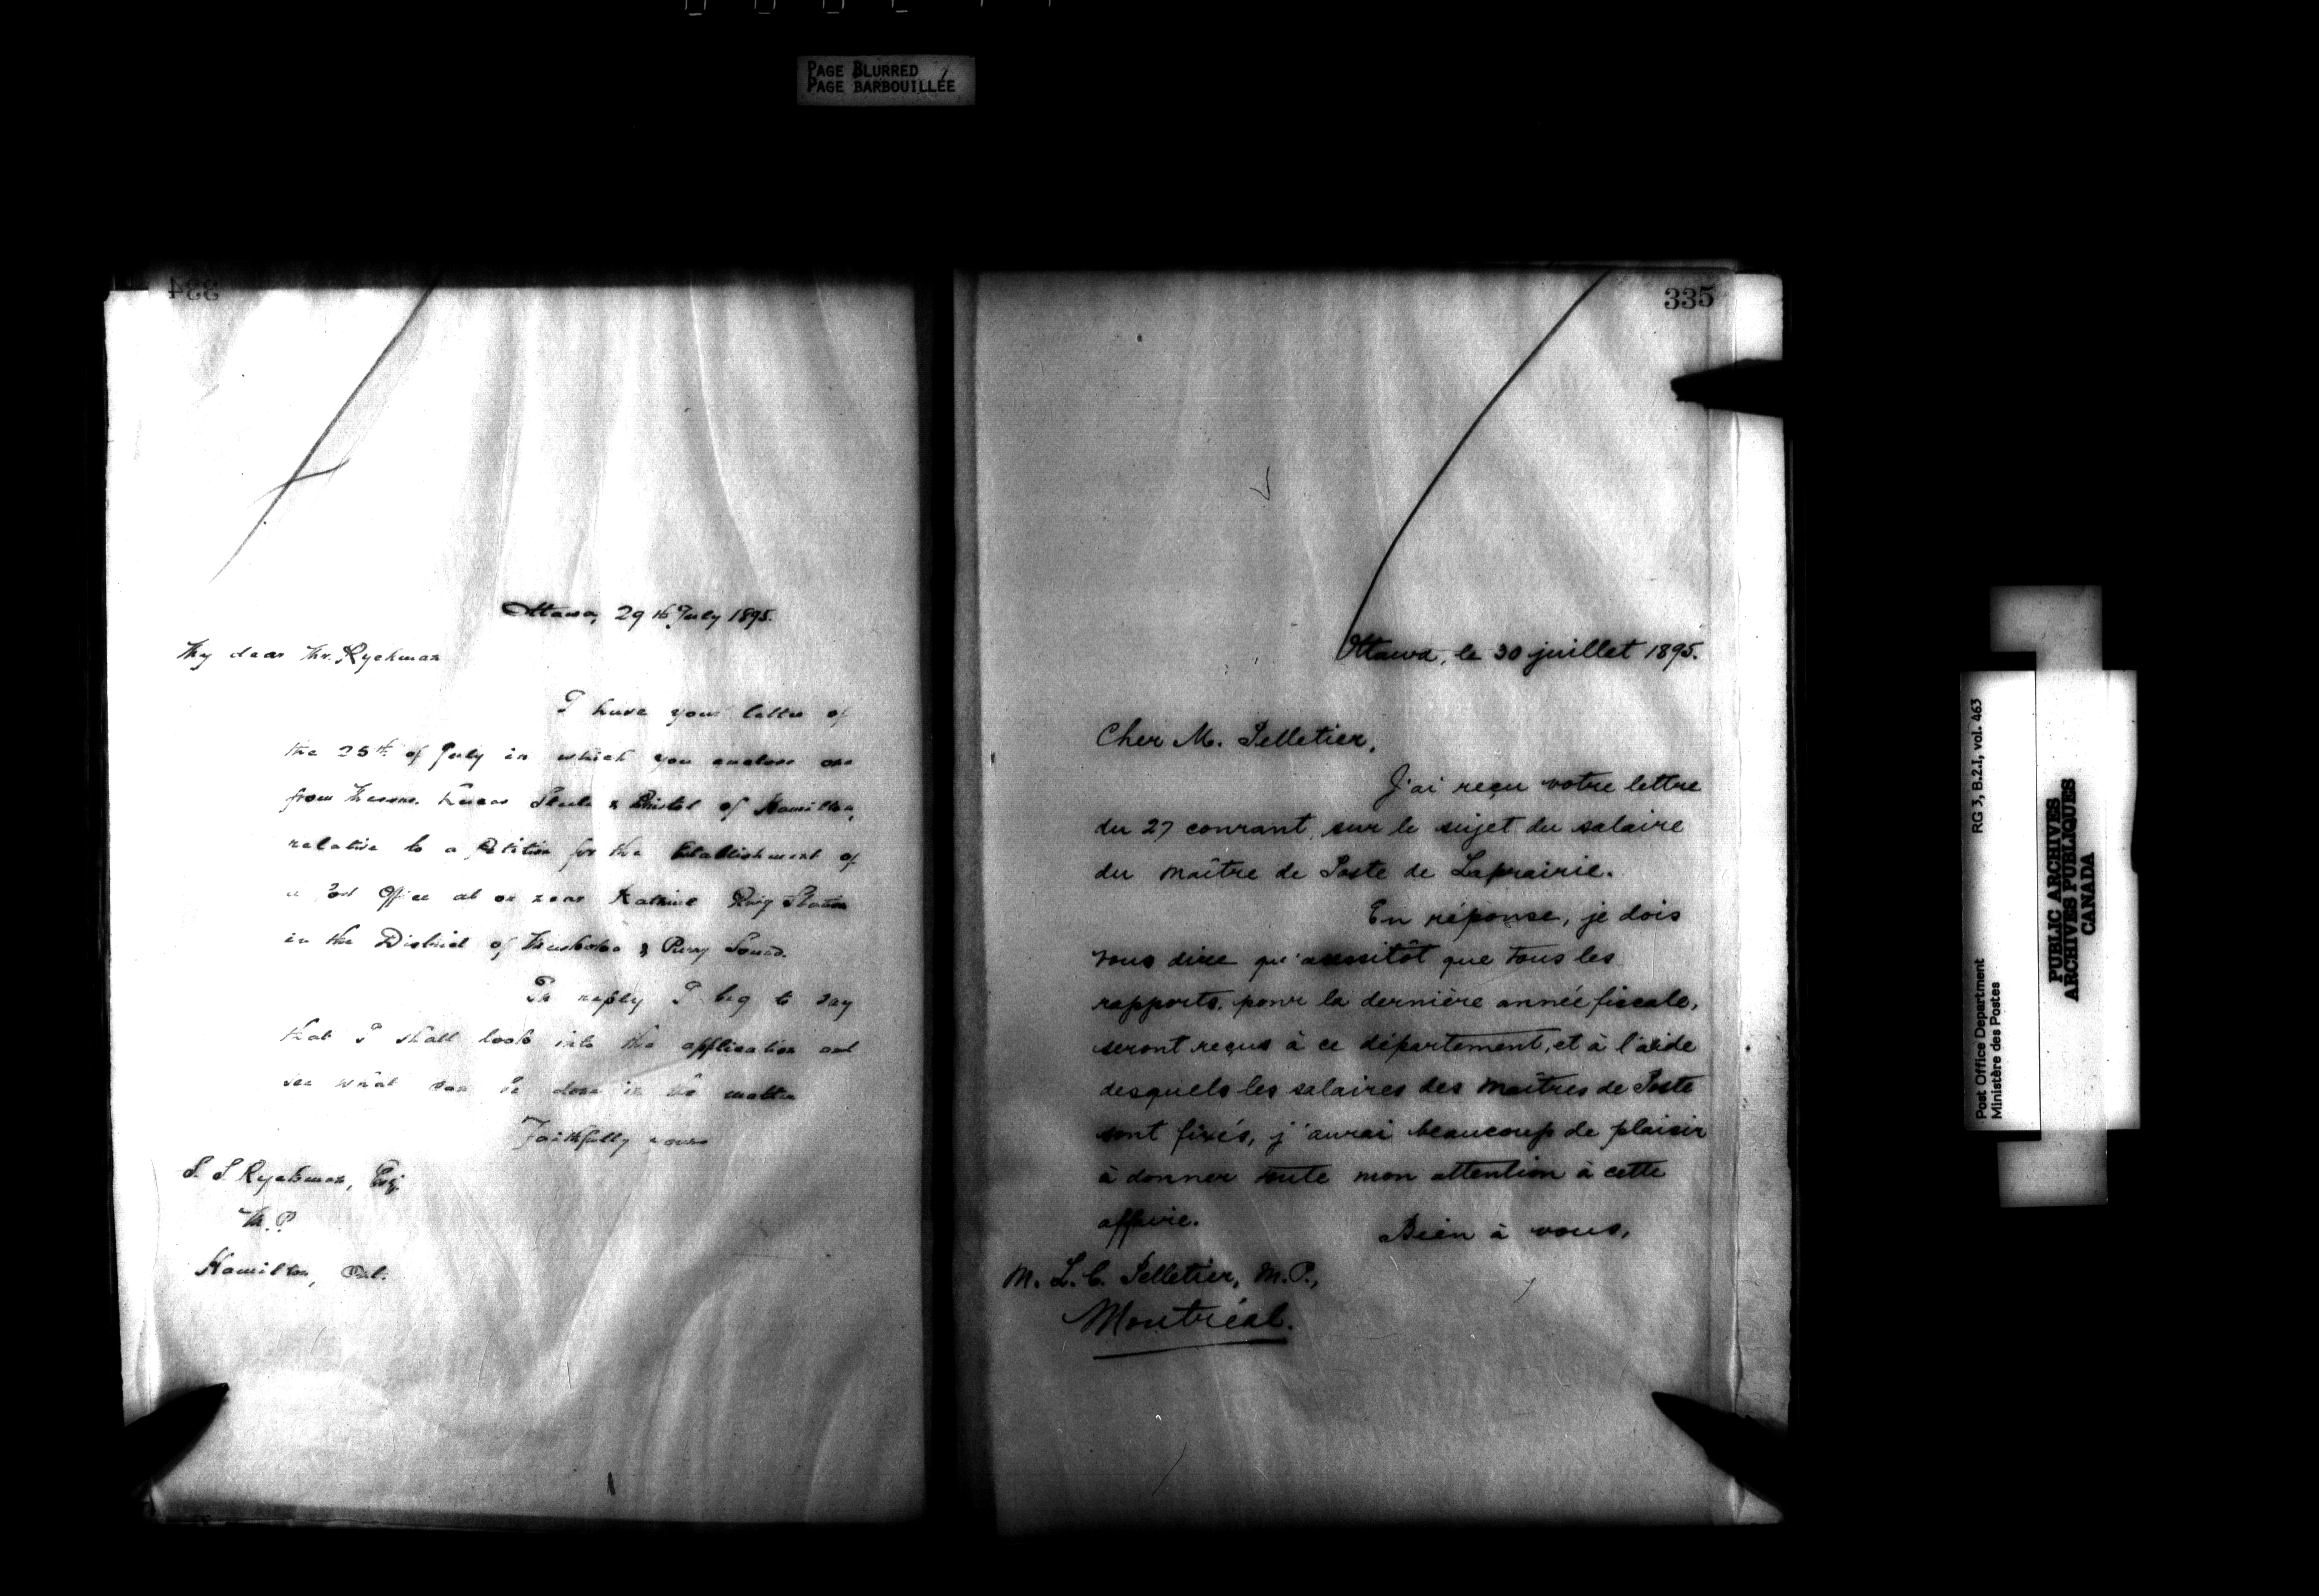 PAGE BLURRED
PAGE BARBOUILLÉE
334
Ottawa, 29th July 1895.
My dear Mr. Ryckman
I have your letter of
the 25th of July in which you enclose one
from Messrs. Lucas Steele & Bristol of Hamilton,
relative to a Petition for the Establishment of
a Post Office at or near Katrine Station
in the District of Muskoka & Parry Sound.
In reply I beg to say
that I shall look into the application and
see what can be done in the matter
Faithfully yours
S. S. Ryckman, Esq.
M.P.
Hamilton, Ont.
335
Ottawa, le 30 juillet 1895.
Cher M. Pelletier,
J'ai reçu votre lettre
du 27 courant, sur le sujet du salaire
du maître de Poste de Laprairie.
En réponse, je dois
vous dire qu'aussitôt que tous les
rapports, pour la dernière année fiscale,
seront reçus à ce département, et à l'aide
desquels les salaires des Maîtres de Poste
sont fixés, j'aurai beaucoup de plaisir
à donner toute mon attention à cette
affaire.
Bien à vous,
M. L. C. Pelletier, M.P.,
Montréal.
Post Office Department
Ministère des Postes
RG 3, B.2.I, vol. 463
PUBLIC ARCHIVES
ARCHIVES PUBLIQUES
CANADA